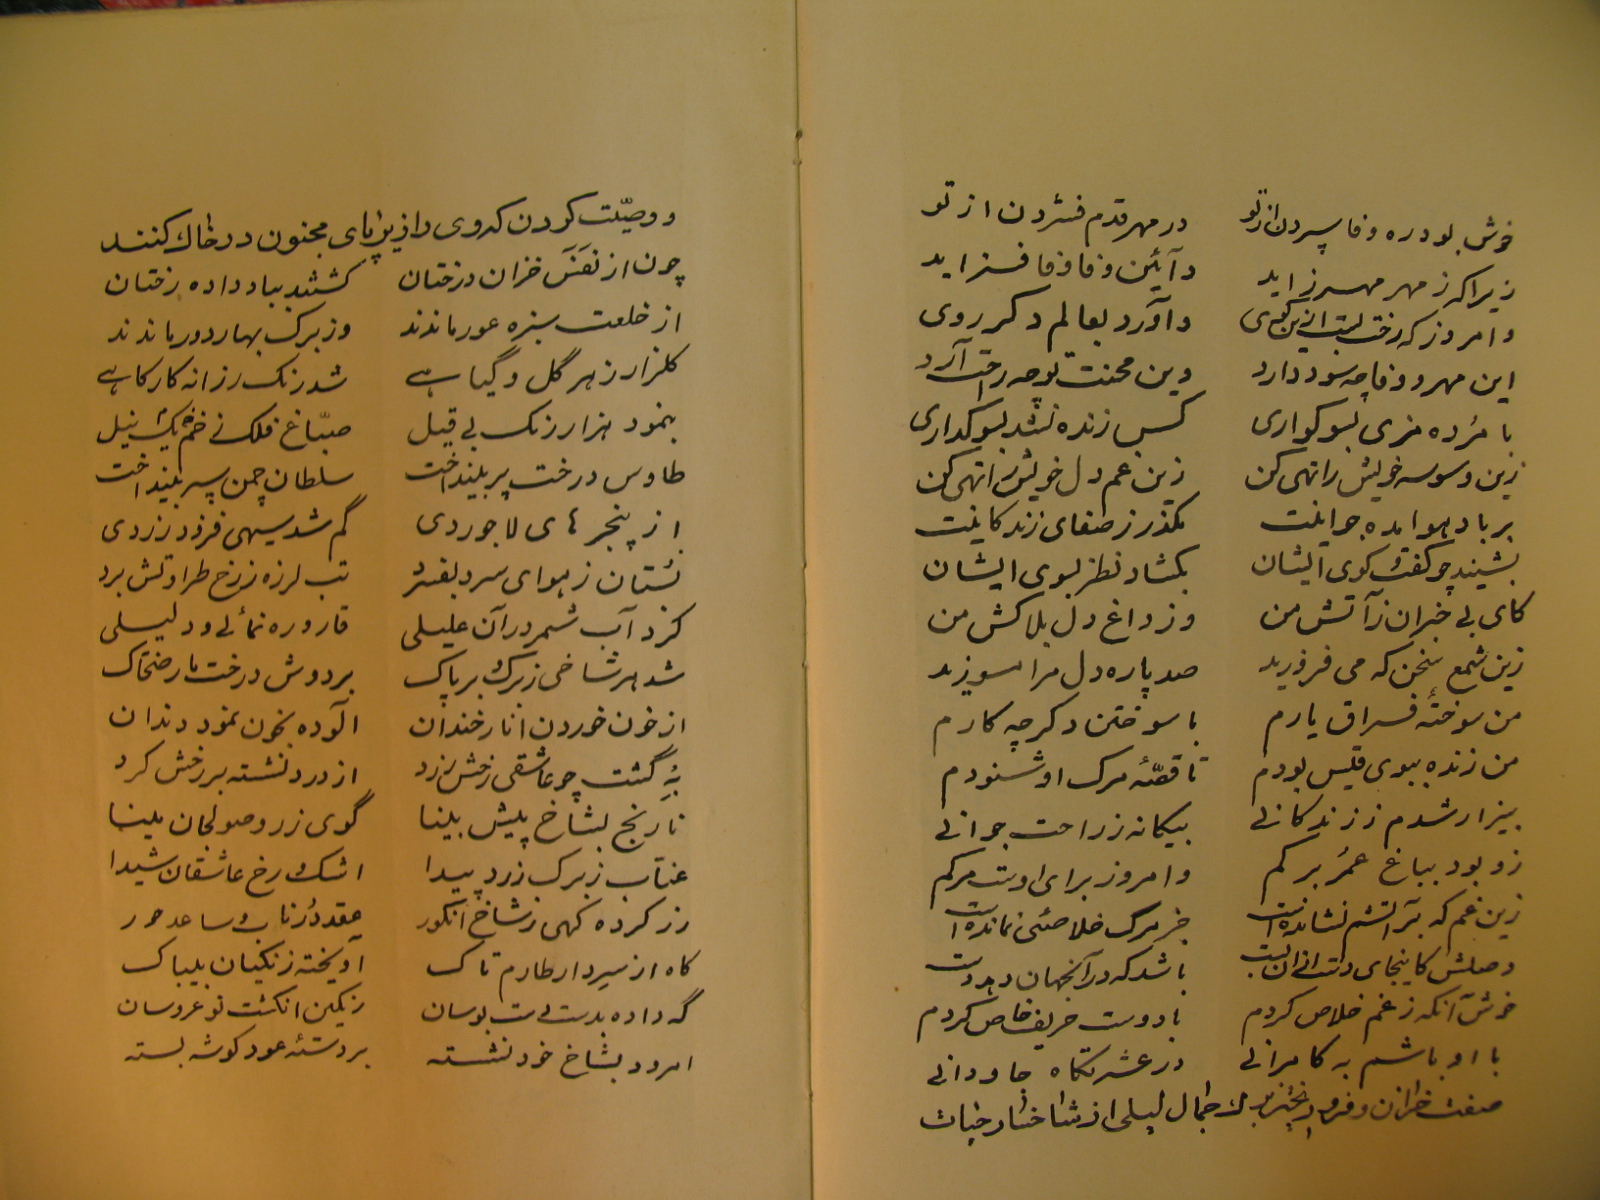 خوش بود ره وفا سپردن از تو در مهر قدم فشردن از تو
زیرا که ز مهر مهر زاید و آئین وفا وفا فزاید
و امروز که رخت بست ازین کوی و آورد بعالم دگر روی
این مهر و وفا چه سود دارد وین محنت تو چه راحت آرد
با مرده مزی بسوکواری کس زنده نشد بسوکداری
زین وسوسه خویش را تهی کن زین غم دل خویش را تهی کن
بر باد هوا مده جوانیت مکذر ز صفای زندکانیت
بشنید چو کفت کوی ایشان بکشاد نظر بسوی ایشان
کای بی خبران ز آتش من وز داغ دل بلاکش من
زین شمع سخن که می فروزید صد پاره دل مرا مسوزید
من سوختهٔ فراق یارم با سوختن دکر چه کارم
من زنده ببوی قیس بودم تا قصّهٔ مرک او شنودم
بیزار شدم ز زندکانی بیکانه ز راحت جوانی
زو بود بباغ عمر برکم و امروز برای اوست مرکم
زین غم که بر آتشم نشانده است جز مرک خلاصئی نمانده است
وصلش کاینجای دست ازان بست باشد که در آنجهان دهد دست
خوش آنکه ز غم خلاص کردم با دوست حریف خاص کردم
با او باشم به کامرانی در عشرتکاه جاودانی
صفت خزان و فرو ریختن برک جمال لیلی از شاخسار حیات
و وصیّت کردن که وی را زیر پای مجنون در خاک کنند
چون از نفس خزان درختان کشتند بباد داده رختان
از خلعت سبزه عور ماندند وز برک بهار دور ماندند
کلزار ز هر گل و گیاهے شد رنک رزانه کارکاهے
بنمود هزار رنک بی قیل صبّاغ فلک نی خم یک نیل
طاوس درخت پر بینداخت سلطان چمن سپر بینداخت
از پنجرهای لاجوردی گم شد سیهی فزود زردی
بستان ز هوای سرد بفسرد تب لرزه ز رخ طراوتش برد
کرد آب شمر در آن علیلی قاروره نمائی و دلیلی
شد هر شاخی ز برک بر پاک بر دوش درخت مار ضحّاک
از خون خوردن انار خندان آلوده بخون نمود دندان
به گشت چو عاشقی رخش زرد از درد نشسته بر رخش کرد
نارنج بشاخ پیش بینا گوی زر و صولجان مینا
عنّاب ز برک زرد پیدا اشک و رخ عاشقان شیدا
رز کرده کهی ز شاخ انکور عقد در ناب ساعد حور
کاه از سر دار طارم تاک آویخته زنکیان بیباک
گه داده بدست بوسان رنکین انکشت نو عروسان
امرود بشاخ خود نشسته بر دستهٔ عود کوشه بسته